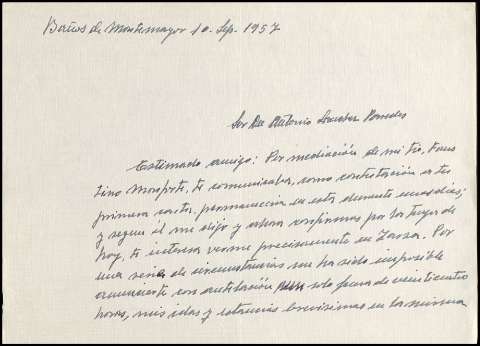 Baños de Montemayor 10. Sep. 1957
Sor Dn Antonio Sanchez Paredes
Estimado amigo: Por mediación de mi tío, Faus
tino Monforte, te comunicaba, como contestación a tu
primera carta, permanecería en esta durante unos dias;
y segun él me dijo y ahora confirmas por la tuya de
hoy, te interesa verme precisamente en Zarza. Por
una serie de circunstancias me ha sido imposible
anunciarte con antelación solo fuera de veinticuatro
horas, mis idas y estancias brevisimas en la misma